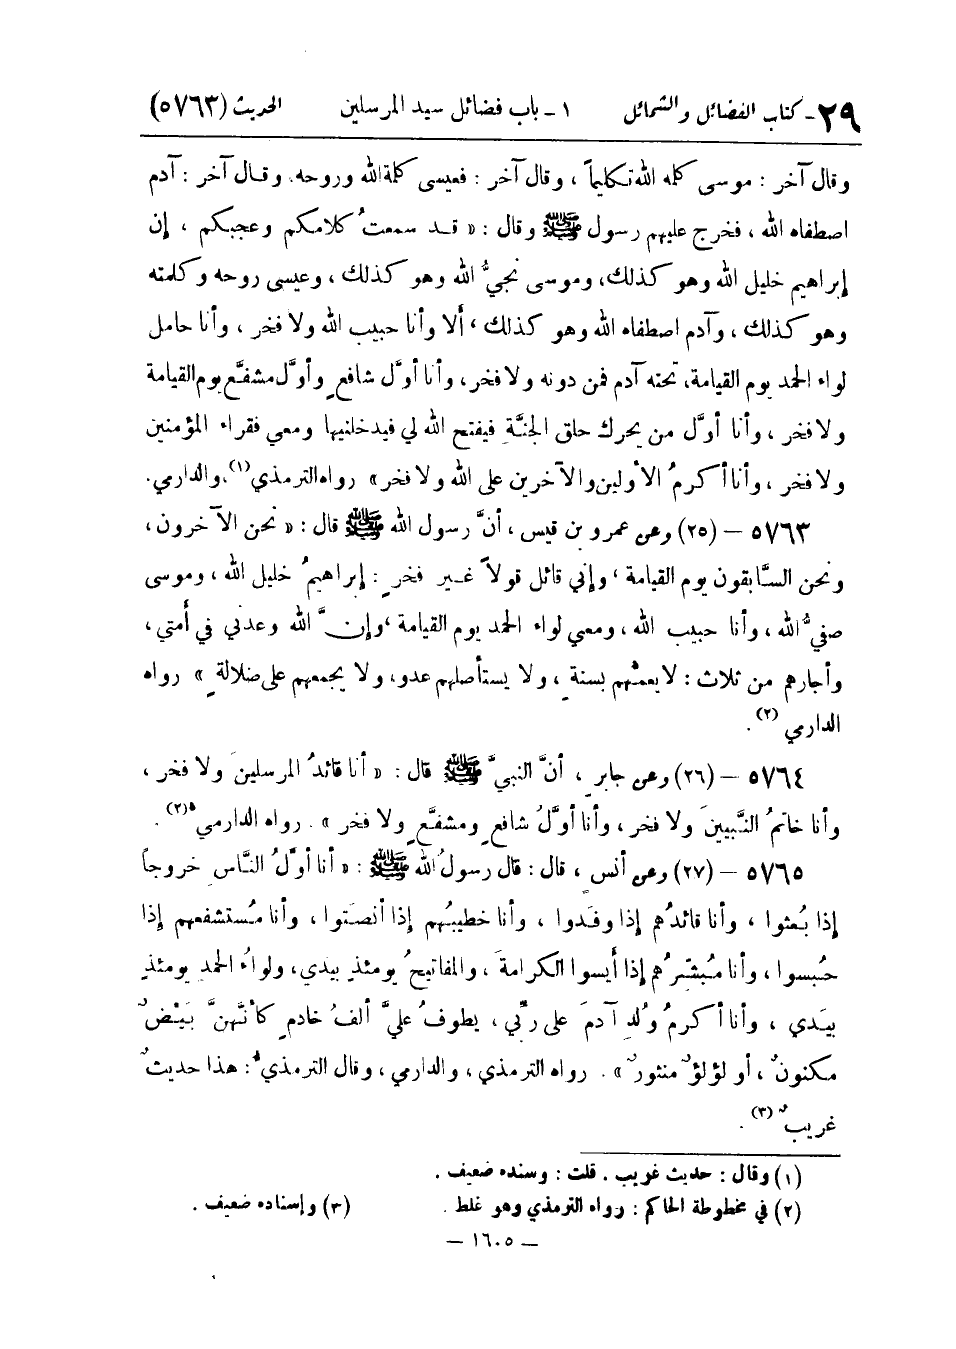 ٢٩- كتاب الفضائل والشمائل ١ - باب فضائل سيد المرسلين الحديث (٥٧٦٣)
وقال آخر : موسى كلمه الله تكليماً ، وقال آخر : فعيسى كلمة الله وروحه. وقال آخر : آدم
اصطفاه الله ، فخرج عليهم رسول ﷺ وقال : « قد سمعتُ كلامكم وعجبكم ، إن
إبراهيم خليل الله وهو كذلك، وموسى نجيُّ الله وهو كذلك ، وعيسى روحه وكلمته
وهو كذلك ، وآدم اصطفاه الله وهو كذلك ، ألا وأنا حبيب الله ولا فخر ، وأنا حامل
لواء الحمد يوم القيامة، تحته آدم فمن دونه ولا فخر، وأنا أوَّل شافعٍ وأوَّل مشفَّعٍ يوم القيامة
ولا فخر ، وأنا أوَّل من يحرك حلق الجنَّة فيفتح الله لي فيدخلنيها ومعي فقراء المؤمنين
ولا فخر ، وأنا أكرمُ الأولين والآخرين على الله ولا فخر » رواه الترمذي(١)، والدارمي.
٥٧٦٣ – (٢٥) وعن عمرو بن قيس ، أنَّ رسول الله ﷺ قال : « نحن الآخرون ،
ونحن السَّابقون يوم القيامة ، وإني قائل قولاً غير فخرٍ : إبراهيمُ خليل الله ، وموسى
صفيُّ الله ، وأنا حبيب الله ، ومعي لواء الحمد يوم القيامة ، وإنَّ الله وعدني في أمتي ،
وأجارهم من ثلاث : لا يعمُّهم بسنةٍ ، ولا يستأصلهم عدو، ولا يجمعهم على ضلالةٍ » رواه
الدارمي (٢).
٥٧٦٤ – (٢٦) وعن جابرٍ ، أنَّ النبيَّ ﷺ قال : « أنا قائدُ المرسلينَ ولا فخر ،
وأنا خاتمُ النَّبيينَ ولا فخر ، وأنا أوَّلُ شافعٍ ومشفَّعٍ ولا فخر » . رواه الدارمي (٢) .
٥٧٦٥ – (٢٧) وعن أنس ، قال : قال رسولُ الله ﷺ : « أنا أوَّلُ النَّاسِ خروجاً
إذا بُعثوا ، وأنا قائدُهم إذا وفَدوا ، وأنا خطيبُهم إذا أنصَتوا ، وأنا مُستشفعهم إذا
حُبسوا ، وأنا مُبشِّرُهم إذا أيسوا الكرامةَ ، والمفاتيحُ يومئذٍ بيدي، ولواءُ الحمد يومئذٍ
بيَدي ، وأنا أكرمُ وُلدِ آدمَ على ربِّي ، يطوفُ عليَّ ألفُ خادمٍ كأنَّهنَّ بَيْضٌ
مكنونٌ ، أو لؤلؤٌ منثورٌ » . رواه الترمذي ، والدارمي ، وقال الترمذيُّ : هذا حديثٌ
غريبٌ (٣) .
(١) وقال : حديث غريب . قلت : وسنده ضعيف .
(٢) في مخطوطة الحاكم : رواه الترمذي وهو غلط . (٣) وإسناده ضعيف .
– ١٦٠٥ –